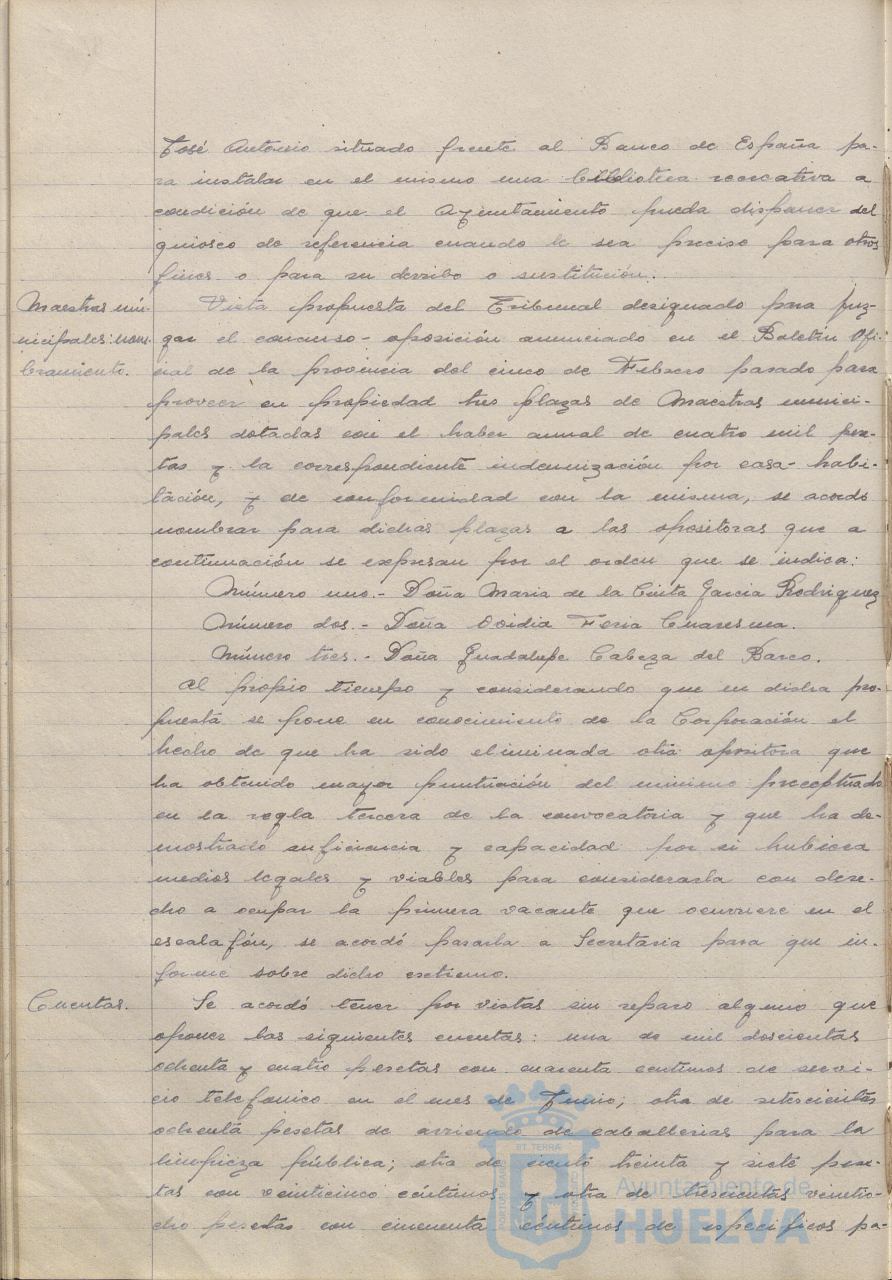 José Antonio situado frente al Banco de España pa-
ra instalar en el mismo una biblioteca recreativa a
condición de que el Ayuntamiento pueda disponer del
quiosco de referencia cuando le sea preciso para otros
fines o para su derribo o sustitución.
Maestras mu-
nicipales: nom-
bramiento.
Vista propuesta del Tribunal designado para juz-
gar el concurso-oposición anunciado en el Boletín Ofi-
cial de la provincia del cinco de Febrero pasado para
proveer en propiedad tres plazas de Maestras munici-
pales dotadas con el haber anual de cuatro mil pese-
tas y la correspondiente indemnización por casa-habi-
tación, y de conformidad con la misma, se acordó
nombrar para dichas plazas a las opositoras que a
continuación se expresan por el orden que se indica:
Número uno.- Doña Maria de la Cinta Garcia Rodriguez
Número dos.- Doña Ovidia Feria Cuaresma.
Número tres.- Doña Guadalupe Cabeza del Barco.
Al propio tiempo y considerando que en dicha pro-
puesta se pone en conocimiento de la Corporación el
hecho de que ha sido eliminada otra opositora que
ha obtenido mayor puntuación del minimo preceptuado
en la regla tercera de la convocatoria y que ha de-
mostrado suficiencia y capacidad por si hubiera
medios legales y viables para considerarla con dere-
cho a ocupar la primera vacante que ocurriere en el
escalafón, se acordó pasarla a Secretaria para que in-
forme sobre dicho extremo.
Cuentas.
Se acordó tener por vistas sin reparo alguno que
oponer las siguientes cuentas: una de mil doscientas
ochenta y cuatro pesetas con cuarenta centimos de servi-
cio telefonico en el mes de Junio; otra de setecientas
ochenta pesetas de arriendo de caballerias para la
limpieza pública; otra de ciento treinta y siete pese-
tas con veinticinco céntimos y otra de trescientas veintio-
cho pesetas con cincuenta céntimos de especificos pa-
Ayuntamiento de
HUELVA